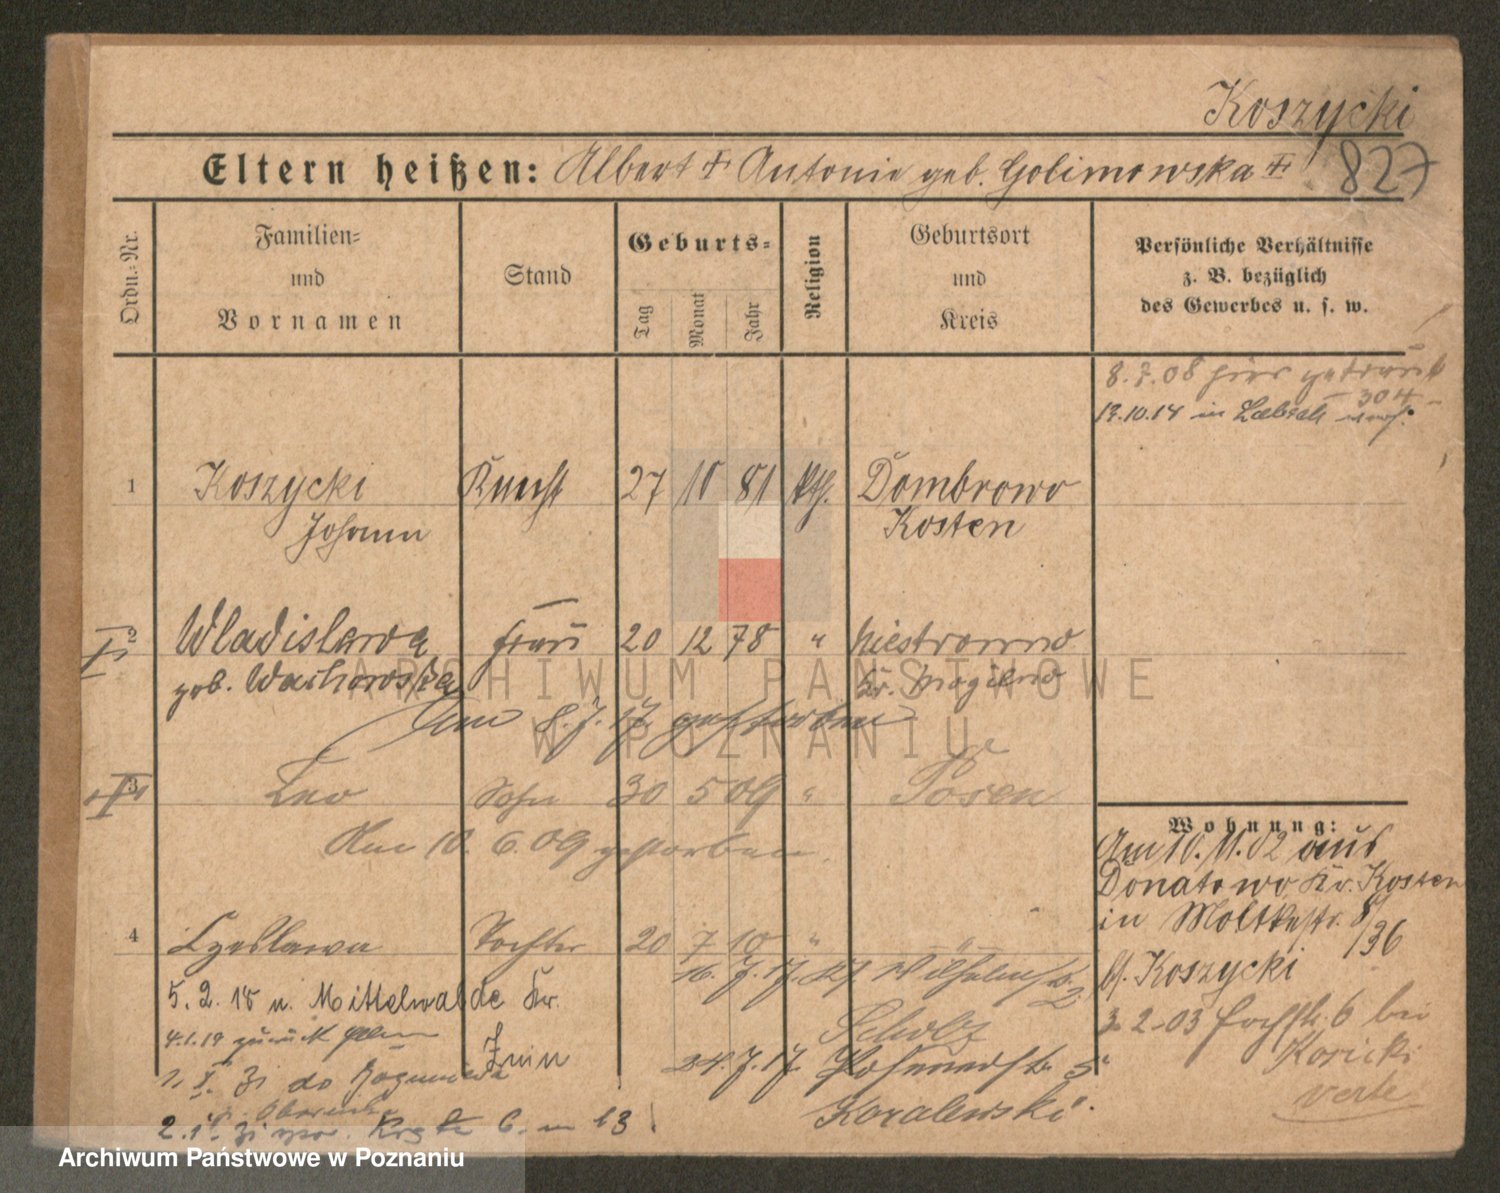 Koszycki
Eltern heißen: Albert + Antonie geb. Golimowska +
827
Ordn.-Nr.
Familien-
und
Vornamen
Stand
Geburts-
Tag
Monat
Jahr
Religion
Geburtsort
und
Kreis
Persönliche Verhältnisse
z. B. bezüglich
des Gewerbes u. s. w.
8.7.08 hier getraut
- 304 -
13.10.14 in
1 Koszycki Knecht 27 10 81 kth. Dombrowo
Johann Kosten
2 Wladislawa Frau 20 12 78 " Niestronno
geb. Kr. Mogilno
Am 8.7.17 gestorben
3 Leo Sohn 30 5 09 " Posen
Am 10. 6. 09 gestorben.
4 Czeslawa Tochter 20 7 10 " "
16. 7. 17. Wilhelmstr. 2
5. 2. 18 n. Mittelwalde Kr.
Znin
Scholz
4.1.19 zurück
24. 7. 17. 5
Koralewski
1. X. 31 do
2. 6. m 13
Wohnung:
Am 10. 11. 02 aus
Donatowo Kr. Kosten
in Moltkestr. 8
/36
bf. Koszycki
3-2-03 6 bei
Koricki
verte
ARCHIWUM PAŃSTWOWE
W POZNANIU
Archiwum Państwowe w Poznaniu